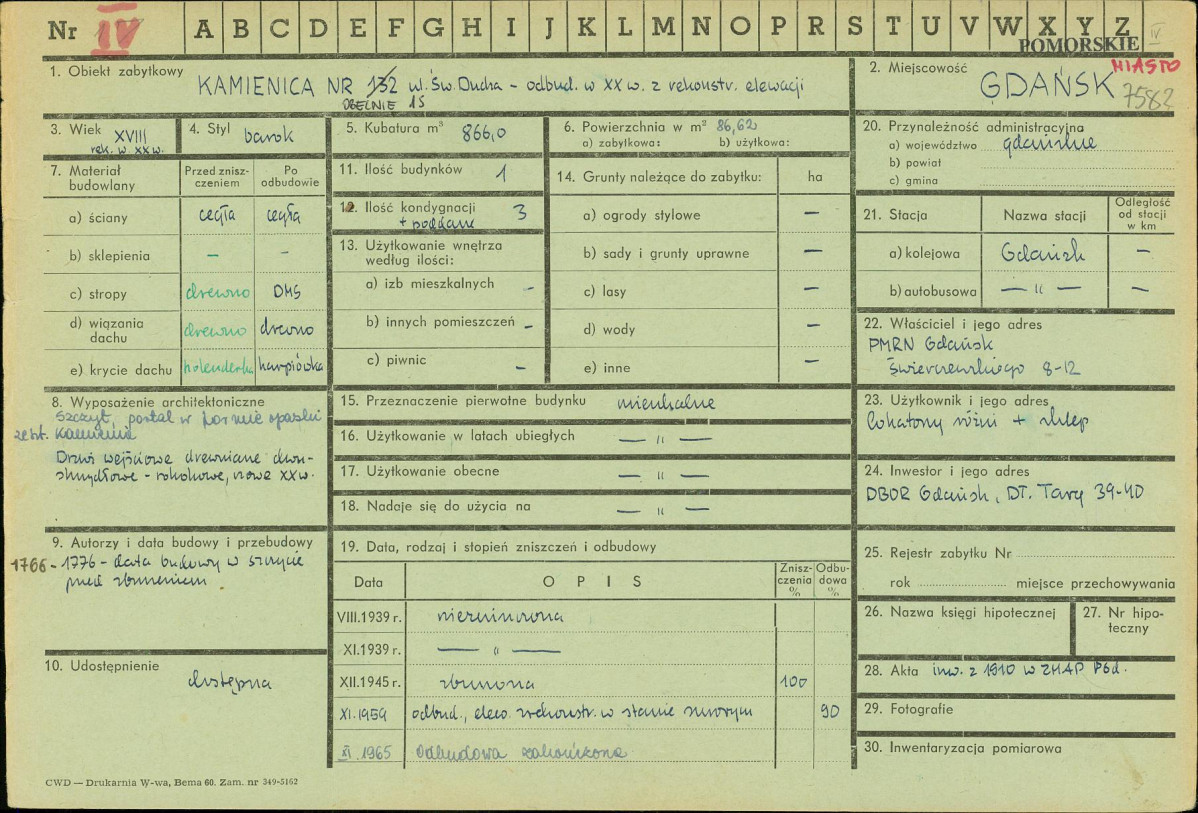 Nr IV A B C D E F G H I J K L M N O P R S T U V W X Y Z IV
POMORSKIE
1. Obiekt zabytkowy KAMIENICA NR 132 ul. Św. Ducha – odbud. w XX w. z rekonstr. elewacji
OBECNIE 15
2. Miejscowość MIASTO
GDAŃSK 7582
3. Wiek XVIII
rek. w XX w.
4. Styl barok
5. Kubatura m³ 866,0
6. Powierzchnia w m² 86,62
a) zabytkowa: b) użytkowa:
20. Przynależność administracyjna
a) województwo gdańskie
b) powiat
c) gmina
7. Materiał budowlany
Przed zniszczeniem
Po odbudowie
a) ściany cegła cegła
b) sklepienia – –
c) stropy drewno DMS
d) wiązania dachu drewno drewno
e) krycie dachu holenderka karpiówka
11. Ilość budynków 1
12. Ilość kondygnacji 3
+ poddasze
13. Użytkowanie wnętrza
według ilości:
a) izb mieszkalnych –
b) innych pomieszczeń –
c) piwnic –
14. Grunty należące do zabytku: ha
a) ogrody stylowe –
b) sady i grunty uprawne –
c) lasy –
d) wody –
e) inne –
21. Stacja Nazwa stacji Odległość od stacji w km
a) kolejowa Gdańsk –
b) autobusowa — " — –
22. Właściciel i jego adres
PMRN Gdańsk
Świerczewskiego 8-12
8. Wyposażenie architektoniczne
Szczyt, portal w formie opaski
kamienia
Drzwi wejściowe drewniane dwu-
skrzydłowe – rokokowe, nowe XX w.
15. Przeznaczenie pierwotne budynku mieszkalne
16. Użytkowanie w latach ubiegłych — " —
17. Użytkowanie obecne — " —
18. Nadaje się do użycia na — " —
23. Użytkownik i jego adres
lokatorzy różni + sklep
24. Inwestor i jego adres
DBOR Gdańsk, DT. Targ 39-40
9. Autorzy i data budowy i przebudowy
1766 - 1776 – data budowy w szczycie
przed zburzeniem
10. Udostępnienie
dostępna
19. Data, rodzaj i stopień zniszczeń i odbudowy
Data OPIS Zniszczenia % Odbudowa %
VIII.1939 r. niezniszczona
XI.1939 r. — " —
XII.1945 r. zburzona 100
XI.1959 odbud., elew. rekonstr. w stanie surowym 90
XI.1965 Odbudowa zakończona
25. Rejestr zabytku Nr
rok miejsce przechowywania
26. Nazwa księgi hipotecznej
27. Nr hipoteczny
28. Akta inw. z 1910 w ZHAP PGd.
29. Fotografie
30. Inwentaryzacja pomiarowa
CWD — Drukarnia W-wa, Bema 60. Zam. nr 349-5162